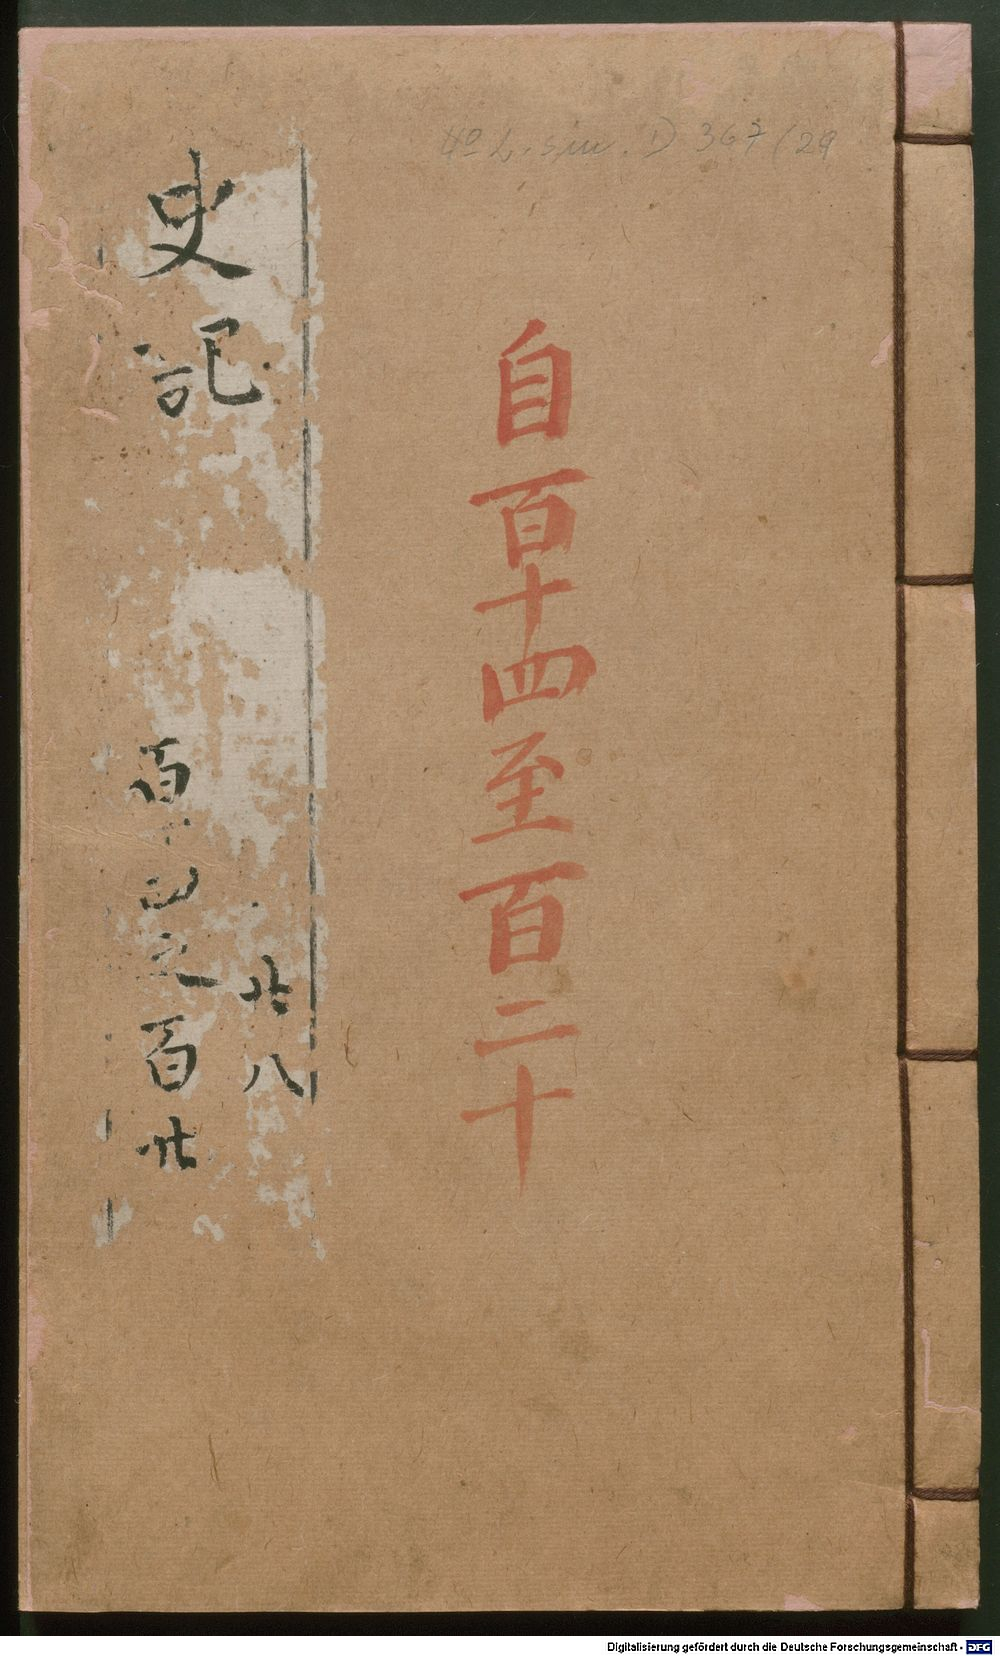 4° L. sin. D 367(29
自百十四至百二十
史記
廿八
百十四之百廿
Digitalisierung gefördert durch die Deutsche Forschungsgemeinschaft - DFG